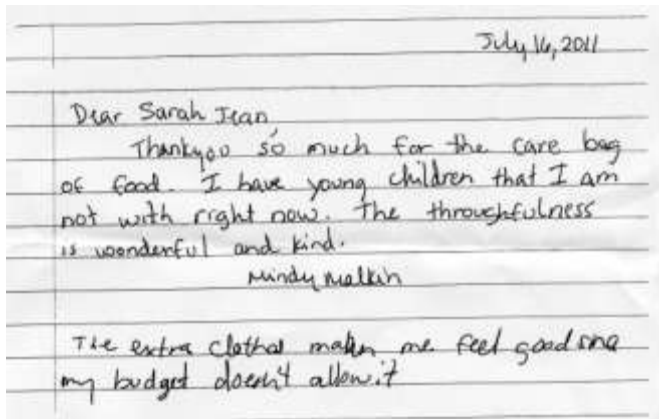 July 16, 2011
Dear Sarah Jean
Thankyou so much for the care bag
of food. I have young children that I am
not with right now. The throughfulness
is wonderful and kind.
Mindy Malkin
The extra clothes makes me feel good since
my budget doesn't allow it